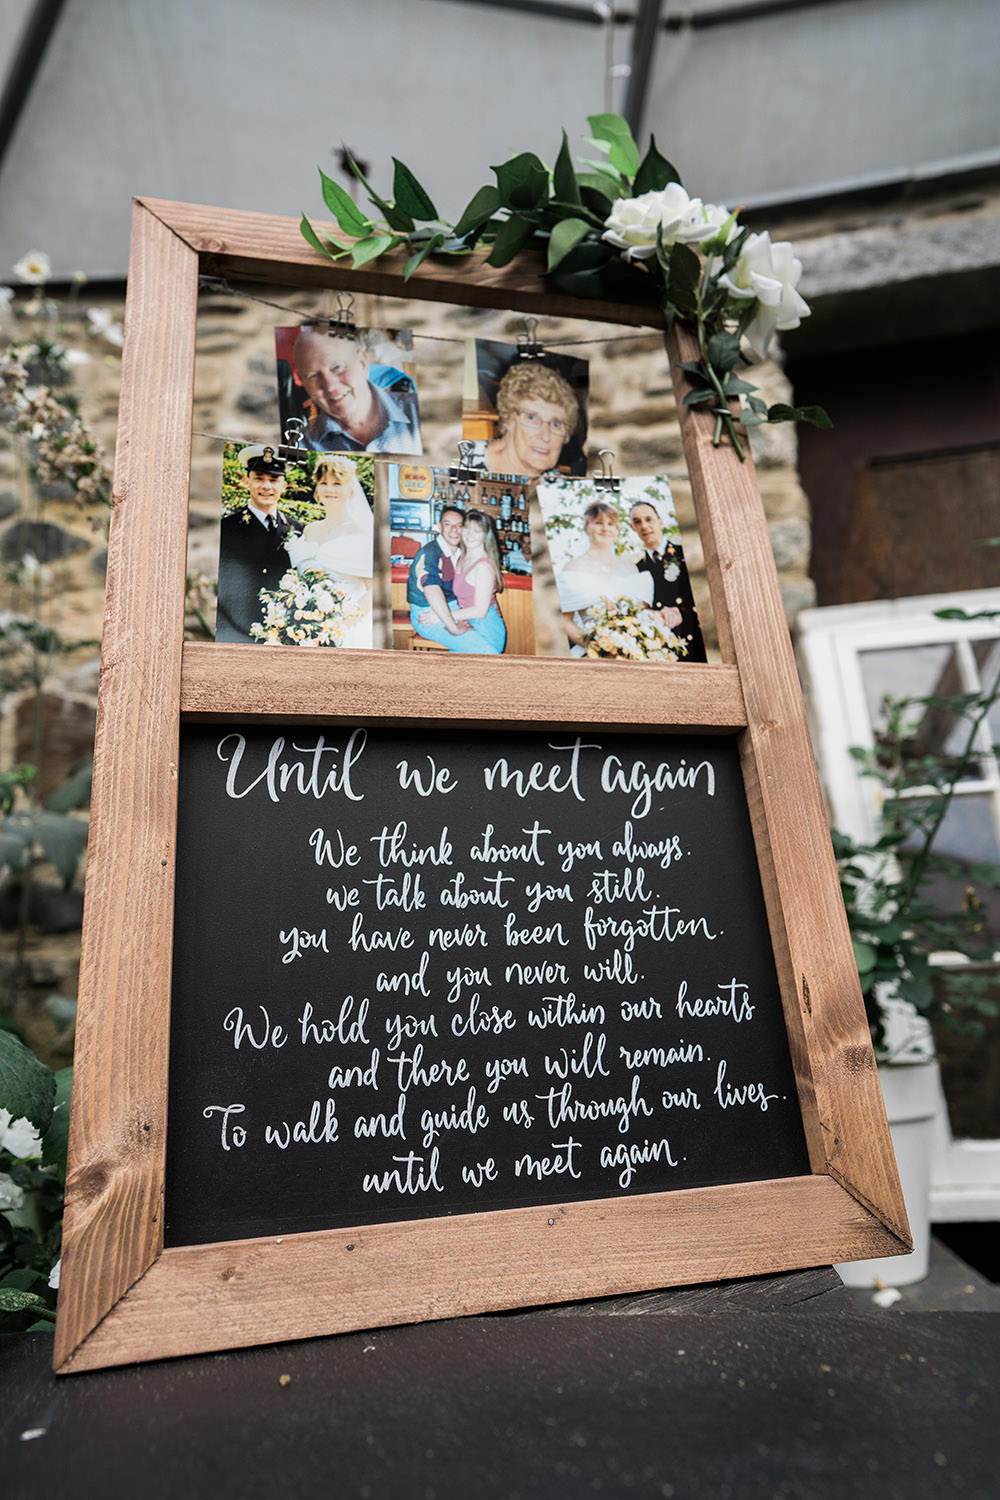 Until we meet again
We think about you always.
we talk about you still.
you have never been forgotten.
and you never will.
We hold you close within our hearts
and there you will remain.
To walk and guide us through our lives.
until we meet again.